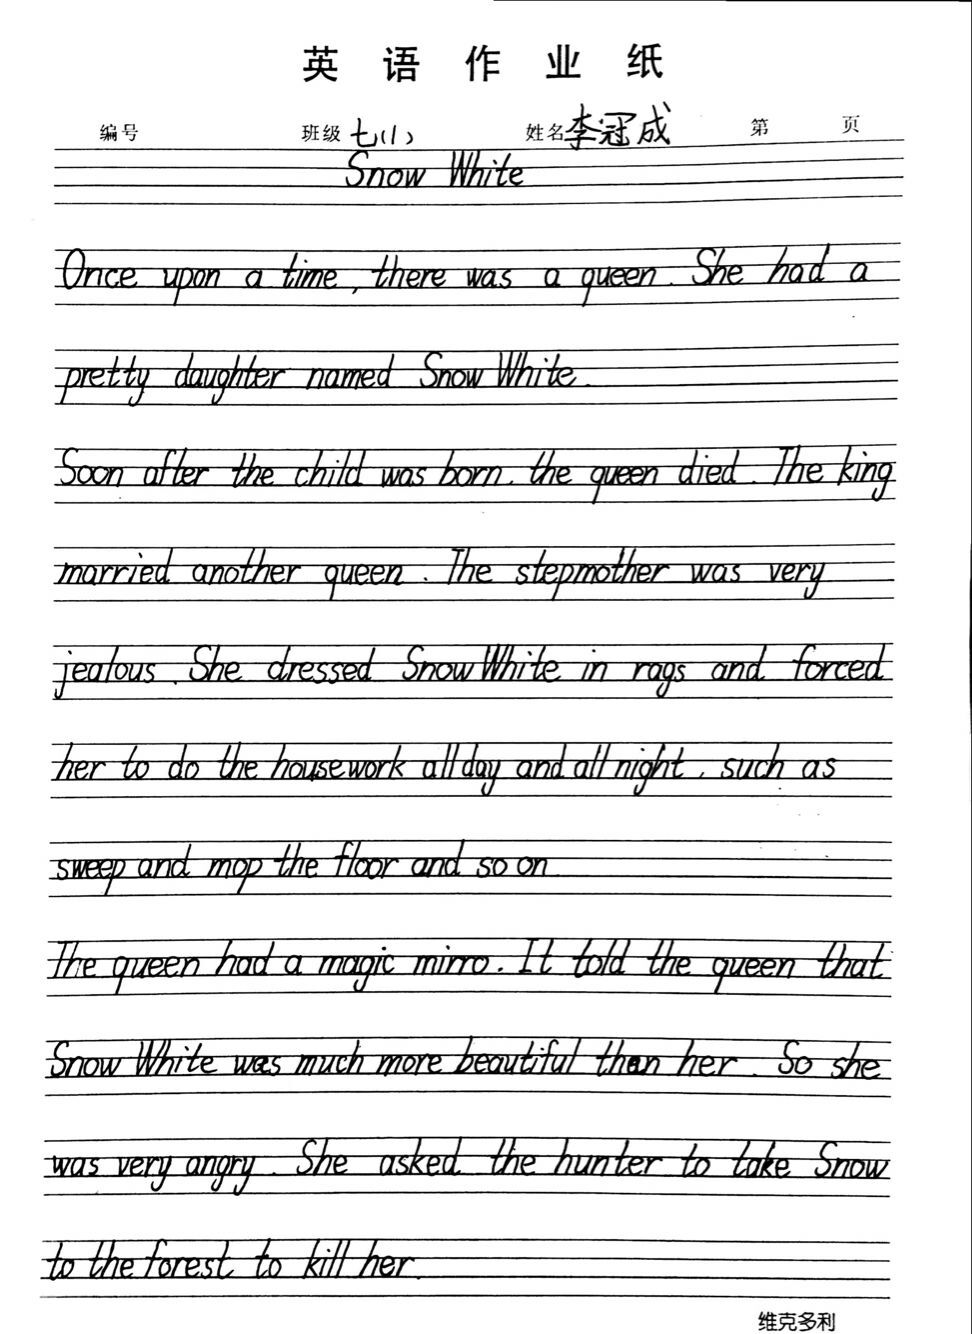 英语作业纸
编号 班级 七(1) 姓名 李冠成 第 页
Snow White
Once upon a time, there was a queen. She had a
pretty daughter named Snow White.
Soon after the child was born, the queen died. The king
married another queen. The stepmother was very
jealous. She dressed Snow White in rags and forced
her to do the housework all day and all night, such as
sweep and mop the floor and so on
The queen had a magic mirro. It told the queen that
Snow White was much more beautiful than her. So she
was very angry. She asked the hunter to take Snow
to the forest to kill her.
维克多利